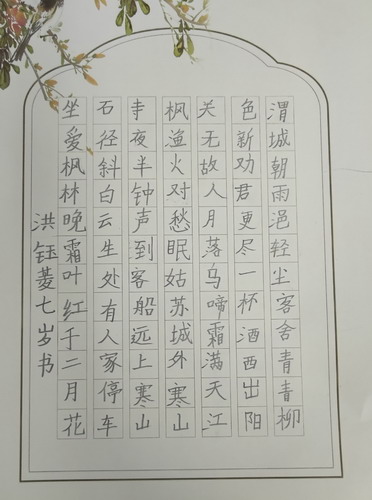 渭城朝雨浥轻尘客舍青青柳
色新劝君更尽一杯酒西出阳
关无故人月落乌啼霜满天江
枫渔火对愁眠姑苏城外寒山
寺夜半钟声到客船远上寒山
石径斜白云生处有人家停车
坐爱枫林晚霜叶红于二月花
洪钰菱七岁书